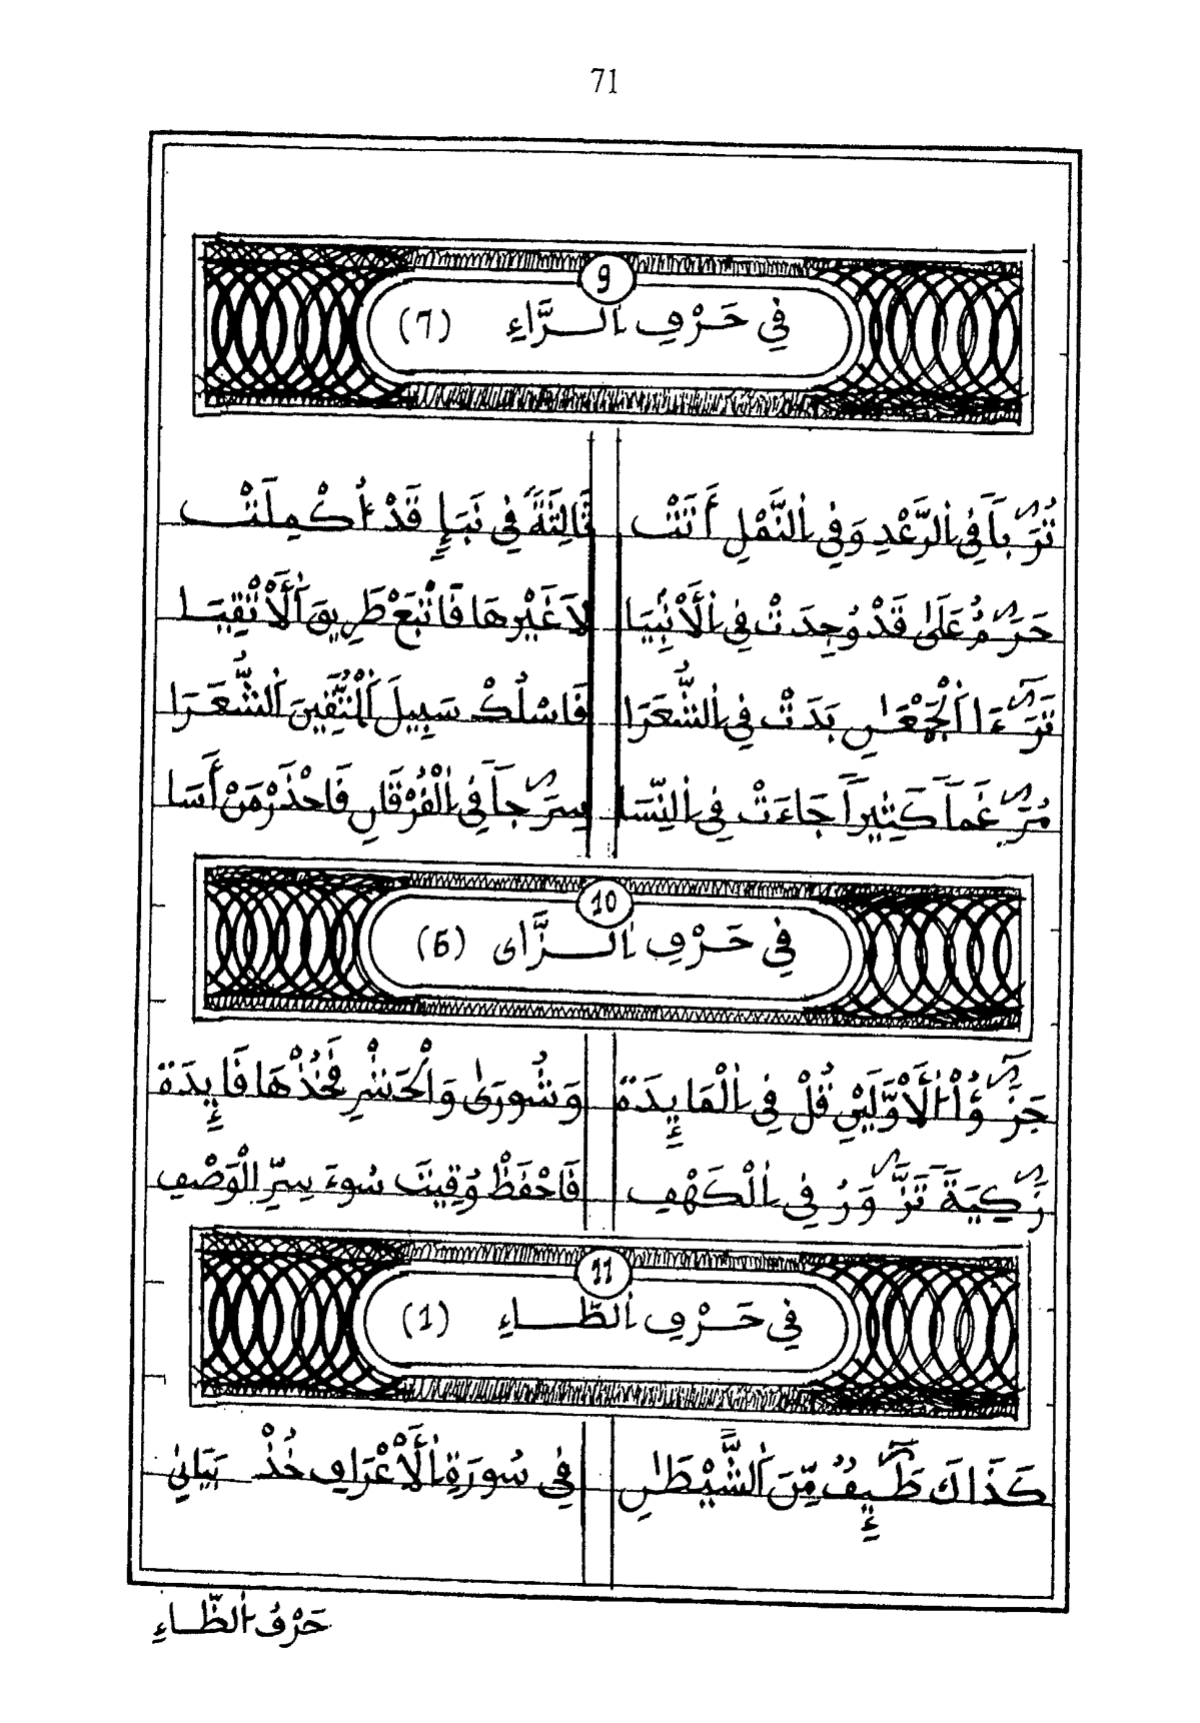 71
9
فِي حَرْفِ اَلرَّاءِ (7)
تُرَٰباً فِي اِلرَّعْدِ وَفِي اِلنَّمْلِ أَتَتْ ثَالِثَةً فِي نَبَإٍ قَدْ أُكْمِلَتْ
حَرَٰمٌ عَلَىٰ قَدْ وُجِدَتْ فِي اِلَانْبِيَا لَا غَيْرِهَا فَاتْبَعْ طَرِيقَ اَلَاتْقِيَا
تَرَٰءَا اَلْجَمْعَٰنِ بَدَتْ فِي اِلشُّعَرَا فَاسْلُكْ سَبِيلَ اَلْمُتَّقِينَ اَلشُّعَرَا
مُرَٰغَماً كَثِيراً جَاءَتْ فِي اِلنِّسَا سِرَٰجاً فِي اِلْفُرْقَانِ فَاحْذَرْ مَنْ أَسَا
10
فِي حَرْفِ اِلزَّاى (6)
جَزَٰٓؤُاْ اُلَاوَّلَيْنِ قُلْ فِي اِلْمَايِٕدَةْ وَشُورَىٰ وَالْحَشْرِ فَخُذْهَا فَايِٕدَةْ
زَٰكِيَةً تَزَّٰوَرُ فِي اِلْكَهْفِ فَاحْفَظْ وُقِيتَ سُوءَ سِرِّ الْوَصْفِ
11
فِي حَرْفِ اِلطَّاءِ (1)
كَذَاكَ طَٰٓيِٕفٌ مِّنَ اَلشَّيْطَٰنِ فِي سُورَةِ اِلَاعْرَافِ خُذْ بَيَانِي
حَرْفُ اُلظَّاءِ